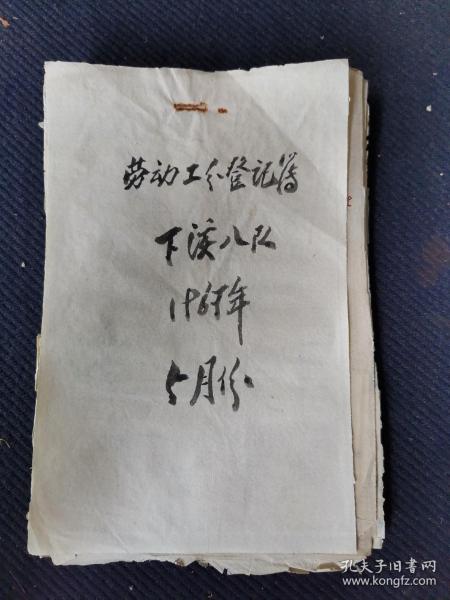 劳动工分登记簿
下溪八队
1965年
5月份
孔夫子旧书网
www.kongfz.com